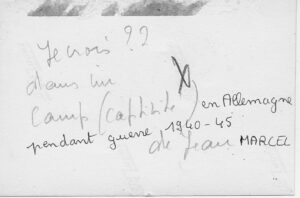 Je crois ??
dans un
camp (captivité) en Allemagne
pendant guerre 1940-45
de Jean MARCEL